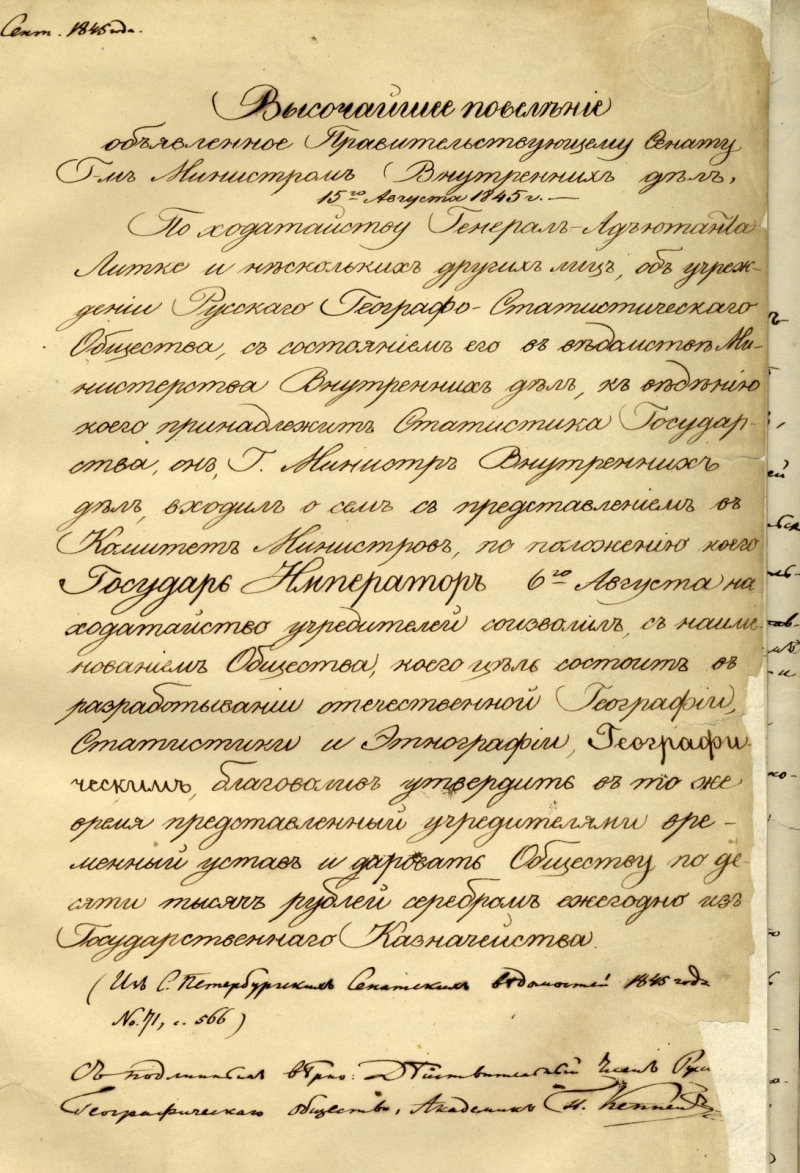 Сент. 1845 года.
Высочайшее повелѣніе
объявленное Правительствующему Сенату
Г-мъ Министромъ Внутреннихъ дѣлъ,
15го Августа 1845 г. —
По ходатайству Генералъ-Адъютанта
Литке и нѣсколькихъ другихъ лицъ, объ учреж-
деніи Русскаго Географо-Статистическаго
Общества, съ состояніемъ его въ вѣдомствѣ Ми-
нистерства Внутреннихъ дѣлъ, къ вѣдѣнію
коего принадлежитъ Статистика Государ-
ства, онъ, Г. Министръ Внутреннихъ
дѣлъ, входилъ о семъ съ представленіемъ въ
Комитетъ Министровъ, по положенію коего
Государь Императоръ 6го Августа на
ходатайство учредителей соизволилъ, съ наиме-
нованіемъ Общества, коего цѣль состоитъ въ
разработываніи отечественной Географіи,
Статистики и Этнографіи, Географи-
ческимъ, благоволивъ утвердить въ то же
время представленный учредителями вре-
менный уставъ и даровать Обществу по де-
сяти тысячъ рублей серебромъ ежегодно изъ
Государственнаго Казначейства.
(Изъ С. Петербургскихъ Сенатскихъ вѣдомостей 1845 года
No. 71, с. 566)
Съ подлиннымъ вѣрно: Дѣйствительный Членъ Рус
Географическаго общества, Академикъ П. Кеппенъ